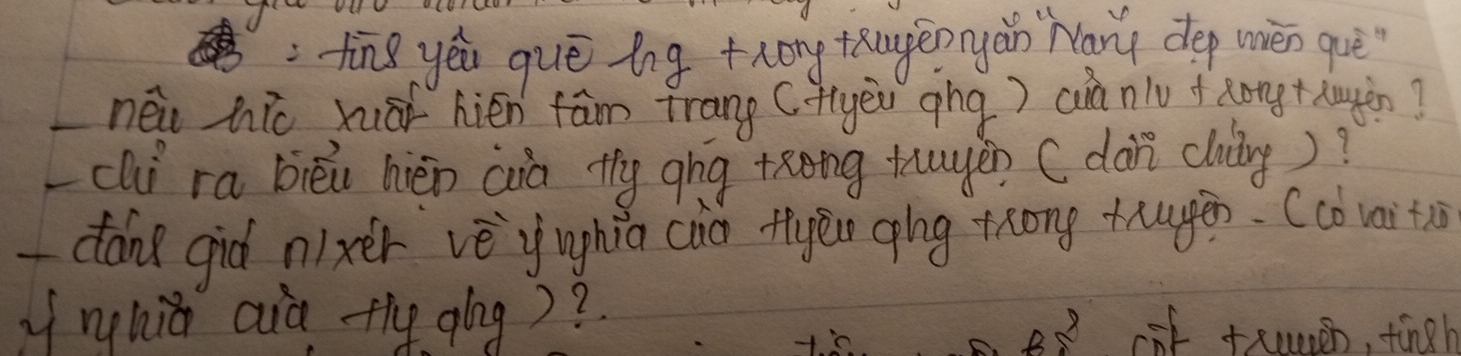 : tình yêu quê hg trong truyện ngắn "Nắng đẹp miền quê"
- nêu xuất hiện tâm trạng (tyêu qhg) của n/v trong truyện?
- chỉ ra biểu hiện của ty qhg trong truyện (dẫn chứng)?
- đánh giá n/xét về ý nghĩa của tyêu qhg trong truyện - (có vai trò
ý nghĩa của ty qhg)?.
cốt truyện, tình h